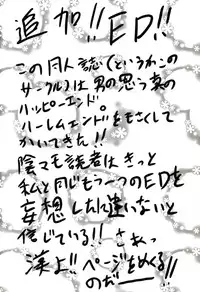 追加!! ED!!
この同人誌(というかこの
サークル)は男の思う真の
ハッピーエンド。
ハーレムエンドをもくして
かいてきた!!
陰マモ読者は きっと
私と同じもう一つのEDを
妄想した違いないと
信じている!! さぁっ
漢よ!! ページをめくる
のだーー!!